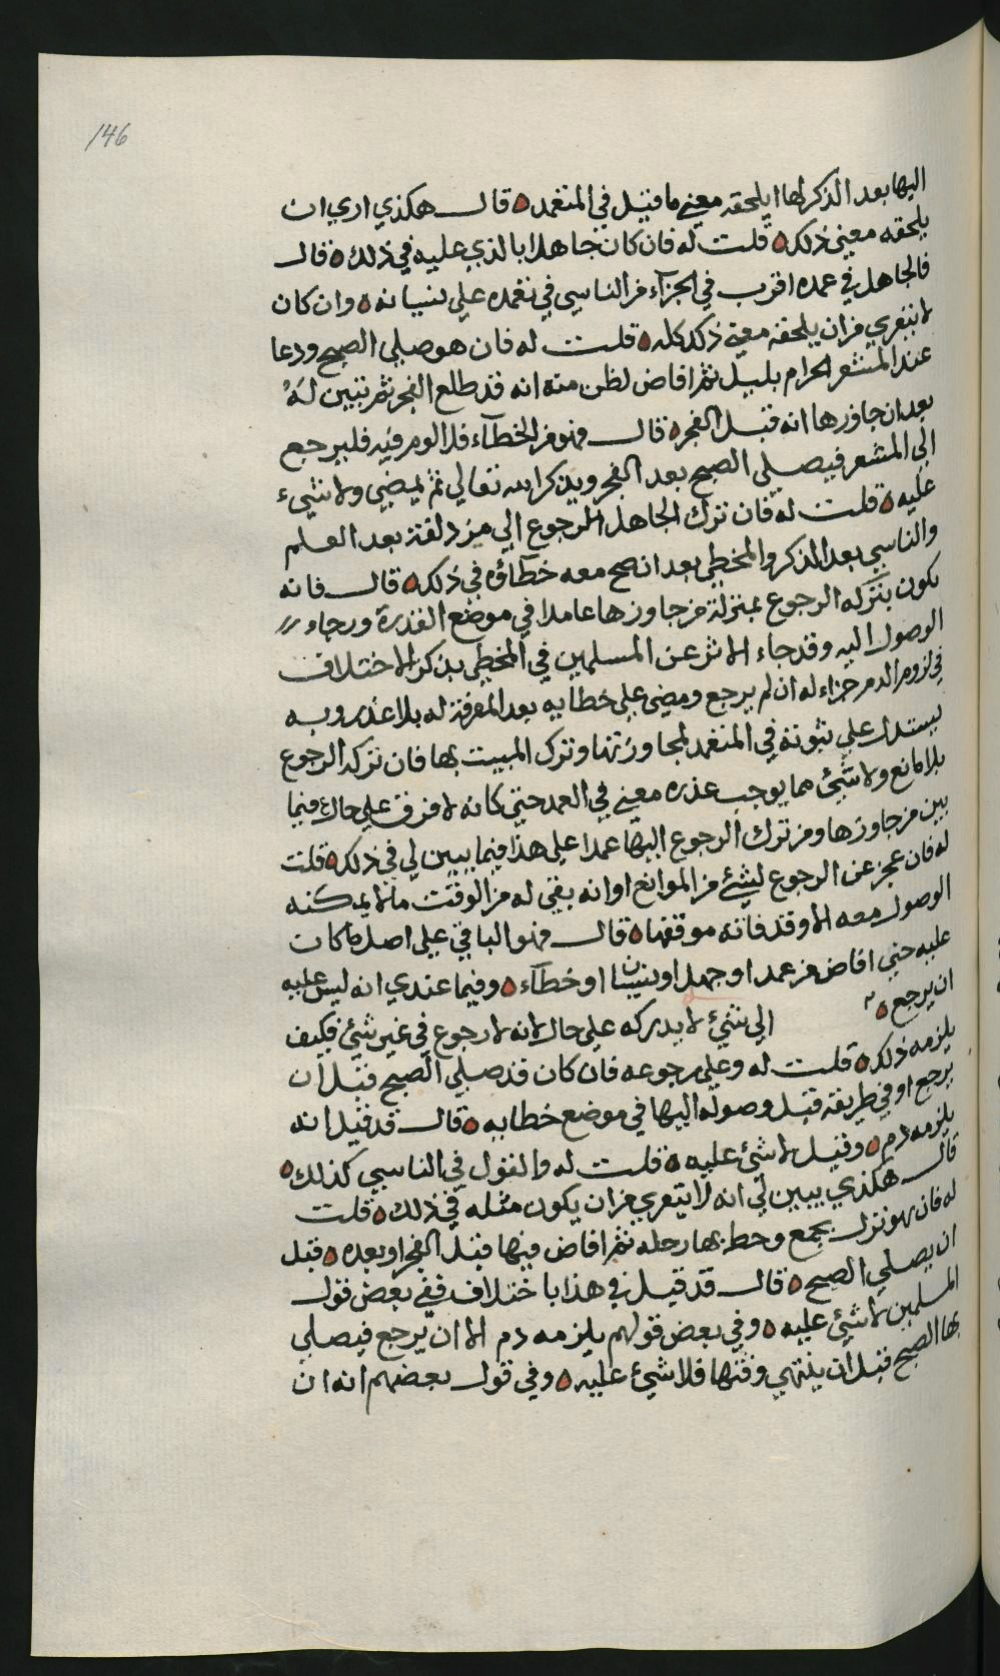 146
اليها بعد الذكر لها ايلحقه معني ما قيل في المتعمد ه قال هكذي اري ان
يلحقه معني ذلك ه قلت له فان كان جاهلا بالذي عليه في ذلك ه قال
فالجاهل في عمده اقرب في الجزآء من الناسي في تعمده علي نسيانه ه وان كان
لا يتعري من ان يلحقه معني ذلك كله ه قلت له فان هو صلي الصبح ودعا
عند المشعر الحرام بليل ثم افاض لظن منه انه قد طلع الفجر ثم تبين لهُ
بعد ان جاوزها انه قبل الفجر ه قال فهو من الخطآء فلا لوم فيه فليرجع
الي المشعر فيصلي الصبح بعد الفجر ويذكر الله تعالي ثم يمضي ولا شيء
عليه ه قلت له فان ترك الجاهل الرجوع الي مزدلفة بعد العلم
والناسي بعد الذكر والمخطي بعد ان صح معه خطآؤه في ذلك ه قال فانه
يكون بتركه الرجوع بمنزلة من جاوزها عامدا في موضع القدرة ورجاء
الوصول اليه وقد جاء الاثر عن المسلمين في المخطي بذكر الاختلاف
في لزوم الدم جزاء له ان لم يرجع ومضي علي خطايه بعد المعرفة له بلا عذر وبه
يستدل علي ثبوته في المتعمد لمجاوزتها وترك المبيت بها فان تركه الرجوع
بلا مانع ولا شيئ مما يوجب عذره معني في العمد حتي كانه لا فرق علي حال فيما
بين من جاوزها ومن ترك الرجوع اليها عمدا علي هذا فيما يبين لي في ذلك ه قلت
له فان عجز عن الرجوع لشيئ من الموانع او انه بقي له من الوقت ما لا يمكنه
الوصول معه الا وقد فاته موقفها ه قال فهو الباقي علي اصل ما كان
عليه حتي افاض من عمد او جهل او نسيان او خطآء ه وفيما عندي انه ليس عليه
ان يرجع ه الي شيئ لا يدركه علي حال لانه لا رجوع في غير شيئ فكيف
يلزمه ذلك ه قلت له وعلي رجوعه فان كان قد صلي الصبح قبل ان
يرجع او في طريقه قبل وصوله اليها في موضع خطايه ه قال قد قيل انه
يلزمه دم ه وقيل لا شيئ عليه ه قلت له والقول في الناسي كذلك ه
قال هكذي يبين لي انه لا يتعري من ان يكون مثله في ذلك ه قلت
له فان هو نزل بجمع وحط بها رحله ثم افاض منها قبل الفجر او بعده ه قبل
ان يصلي الصبح ه قال قد قيل في هذا باختلاف ففي بعض قول
المسلمين لا شيئ عليه ه وفي بعض قولهم يلزمه دم الا ان يرجع فيصلي
بها الصبح قبل ان ينتهي وقتها فلا شيئ عليه ه وفي قول بعضهم انه ان